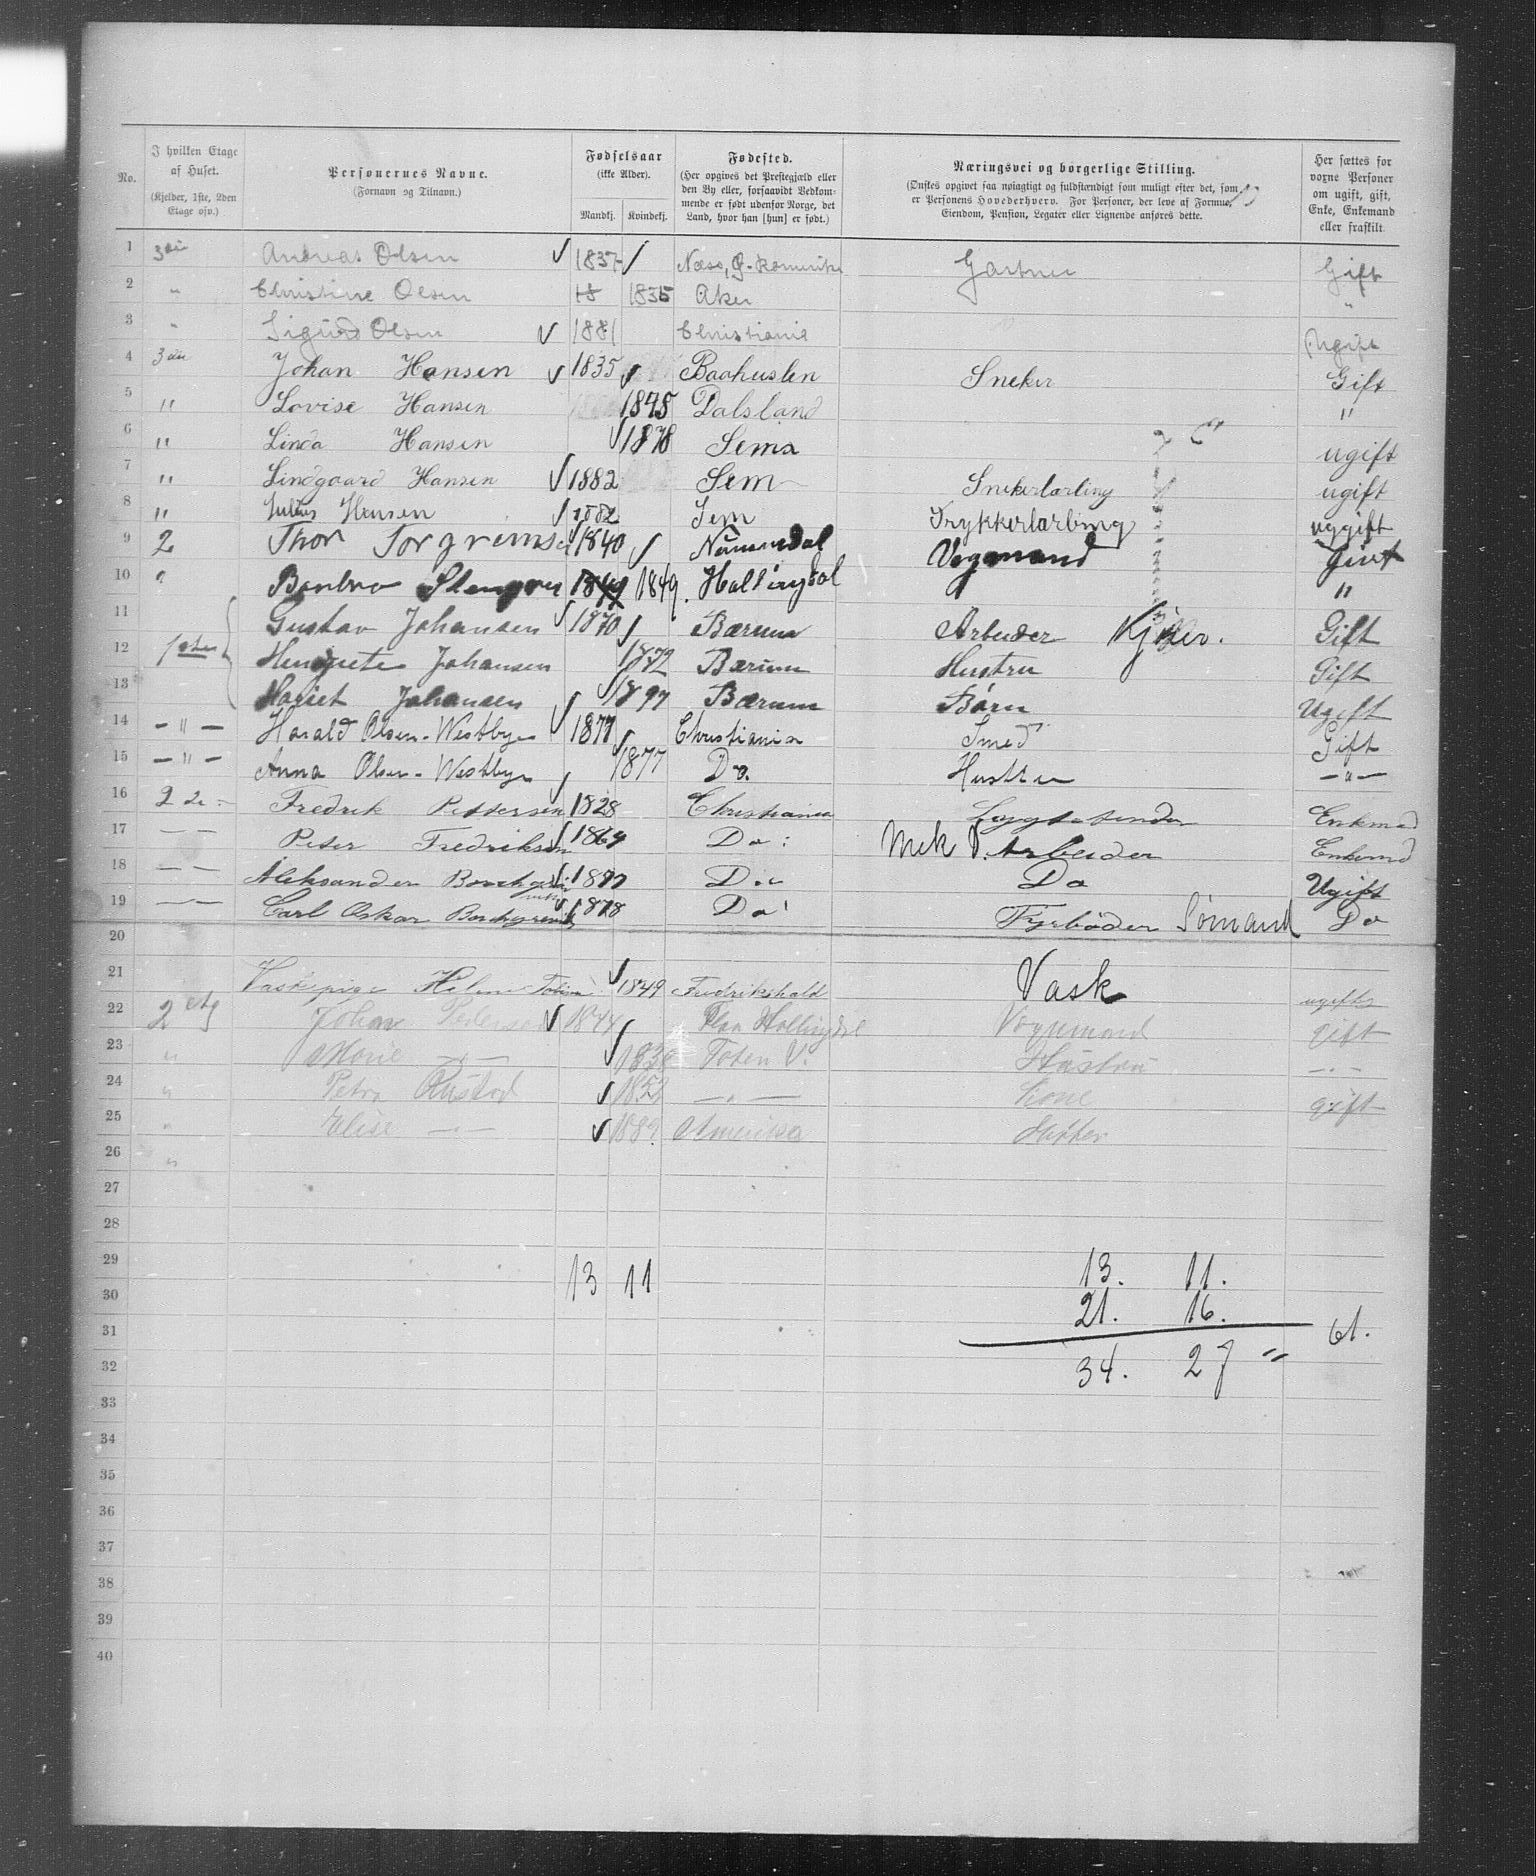 No. | I hvilken Etage af Huset. (Kjelder, 1ste, 2den Etage osv.) | Personernes Navne. (Fornavn og Tilnavn.) | Fødselsaar (ikke Alder). Mandkj. Kvindekj. | Fødested. (Her opgives det Prestegjæld eller den By eller, forsaavidt Vedkommende er født udenfor Norge, det Land, hvor han [hun] er født.) | Næringsvei og borgerlige Stilling. (Ønskes opgivet saa nøiagtigt og fuldstændigt som muligt efter det, som er Personens Hovederhverv. For Personer, der lever af Formue, Eiendom, Pension, Legater eller Lignende anføres dette. | Her sættes for voxne Personer om ugift, gift, Enke, Enkemand eller fraskilt.
1 3die Andreas Olsen 1837 Næss, Ø. Romerike Gartner Gift
2 " Christine Olsen 18 1835 Aker "
3 " Sigurd Olsen 1881 Christiania Ugift
4 3die Johan Hansen 1835 Baahuslen Sneker Gift
5 " Lovise Hansen 1845 Dalsland "
6 " Linda Hansen 1878 Sem ugift
7 " Lindgaard Hansen 1882 Sem Snekerlærling ugift
8 " Julius Hansen 1882 Sem Trykkerlærling uggift
9 2 Thor Torgrimsen 1840 Numedal Vogmand Givt
10 " Barbro 1849 1849. Hallingdal "
11 Gustav Johansen 1870 Bærum Arbeider Kjører. Gift
12 1ste Johansen 1872 Bærum Hustru Gift
13 Johansen 1897 Bærum Børn Ugift
14 - " - Harald Olsen-Westbye 1877 Christiania Smed Gift
15 - " - Anna Olsen-Westbye 1877 Do. Hustru - " -
16 2 Fredrik Pettersen 1828 Christiania Enkemad
17 - - Peter Fredriksen 1869 Do: Mek V. Arbeider Enkemd
18 - - Aleksander 1877 Do Do Ugift
19 - - Carl Oskar Borchgrevink 1878 Do Fyrbøder Sømand Do
20
21 Vaskepige Helene 1849 Fredrikshald Vask ugift
22 2 etg Johan Pedersen 1844 Flaa Hallingdal Vognmand gift
23 " Marie - " - 1838 Toten V. Hustru - " -
24 " Petra Rustad 1853 - " - Kone gift
25 " Elise - " - 1889 Amerika Datter
26 "
27
28
29 13 11 13. 11.
30 21. 16.
31 61.
32 34. 27 "
33
34
35
36
37
38
39
40